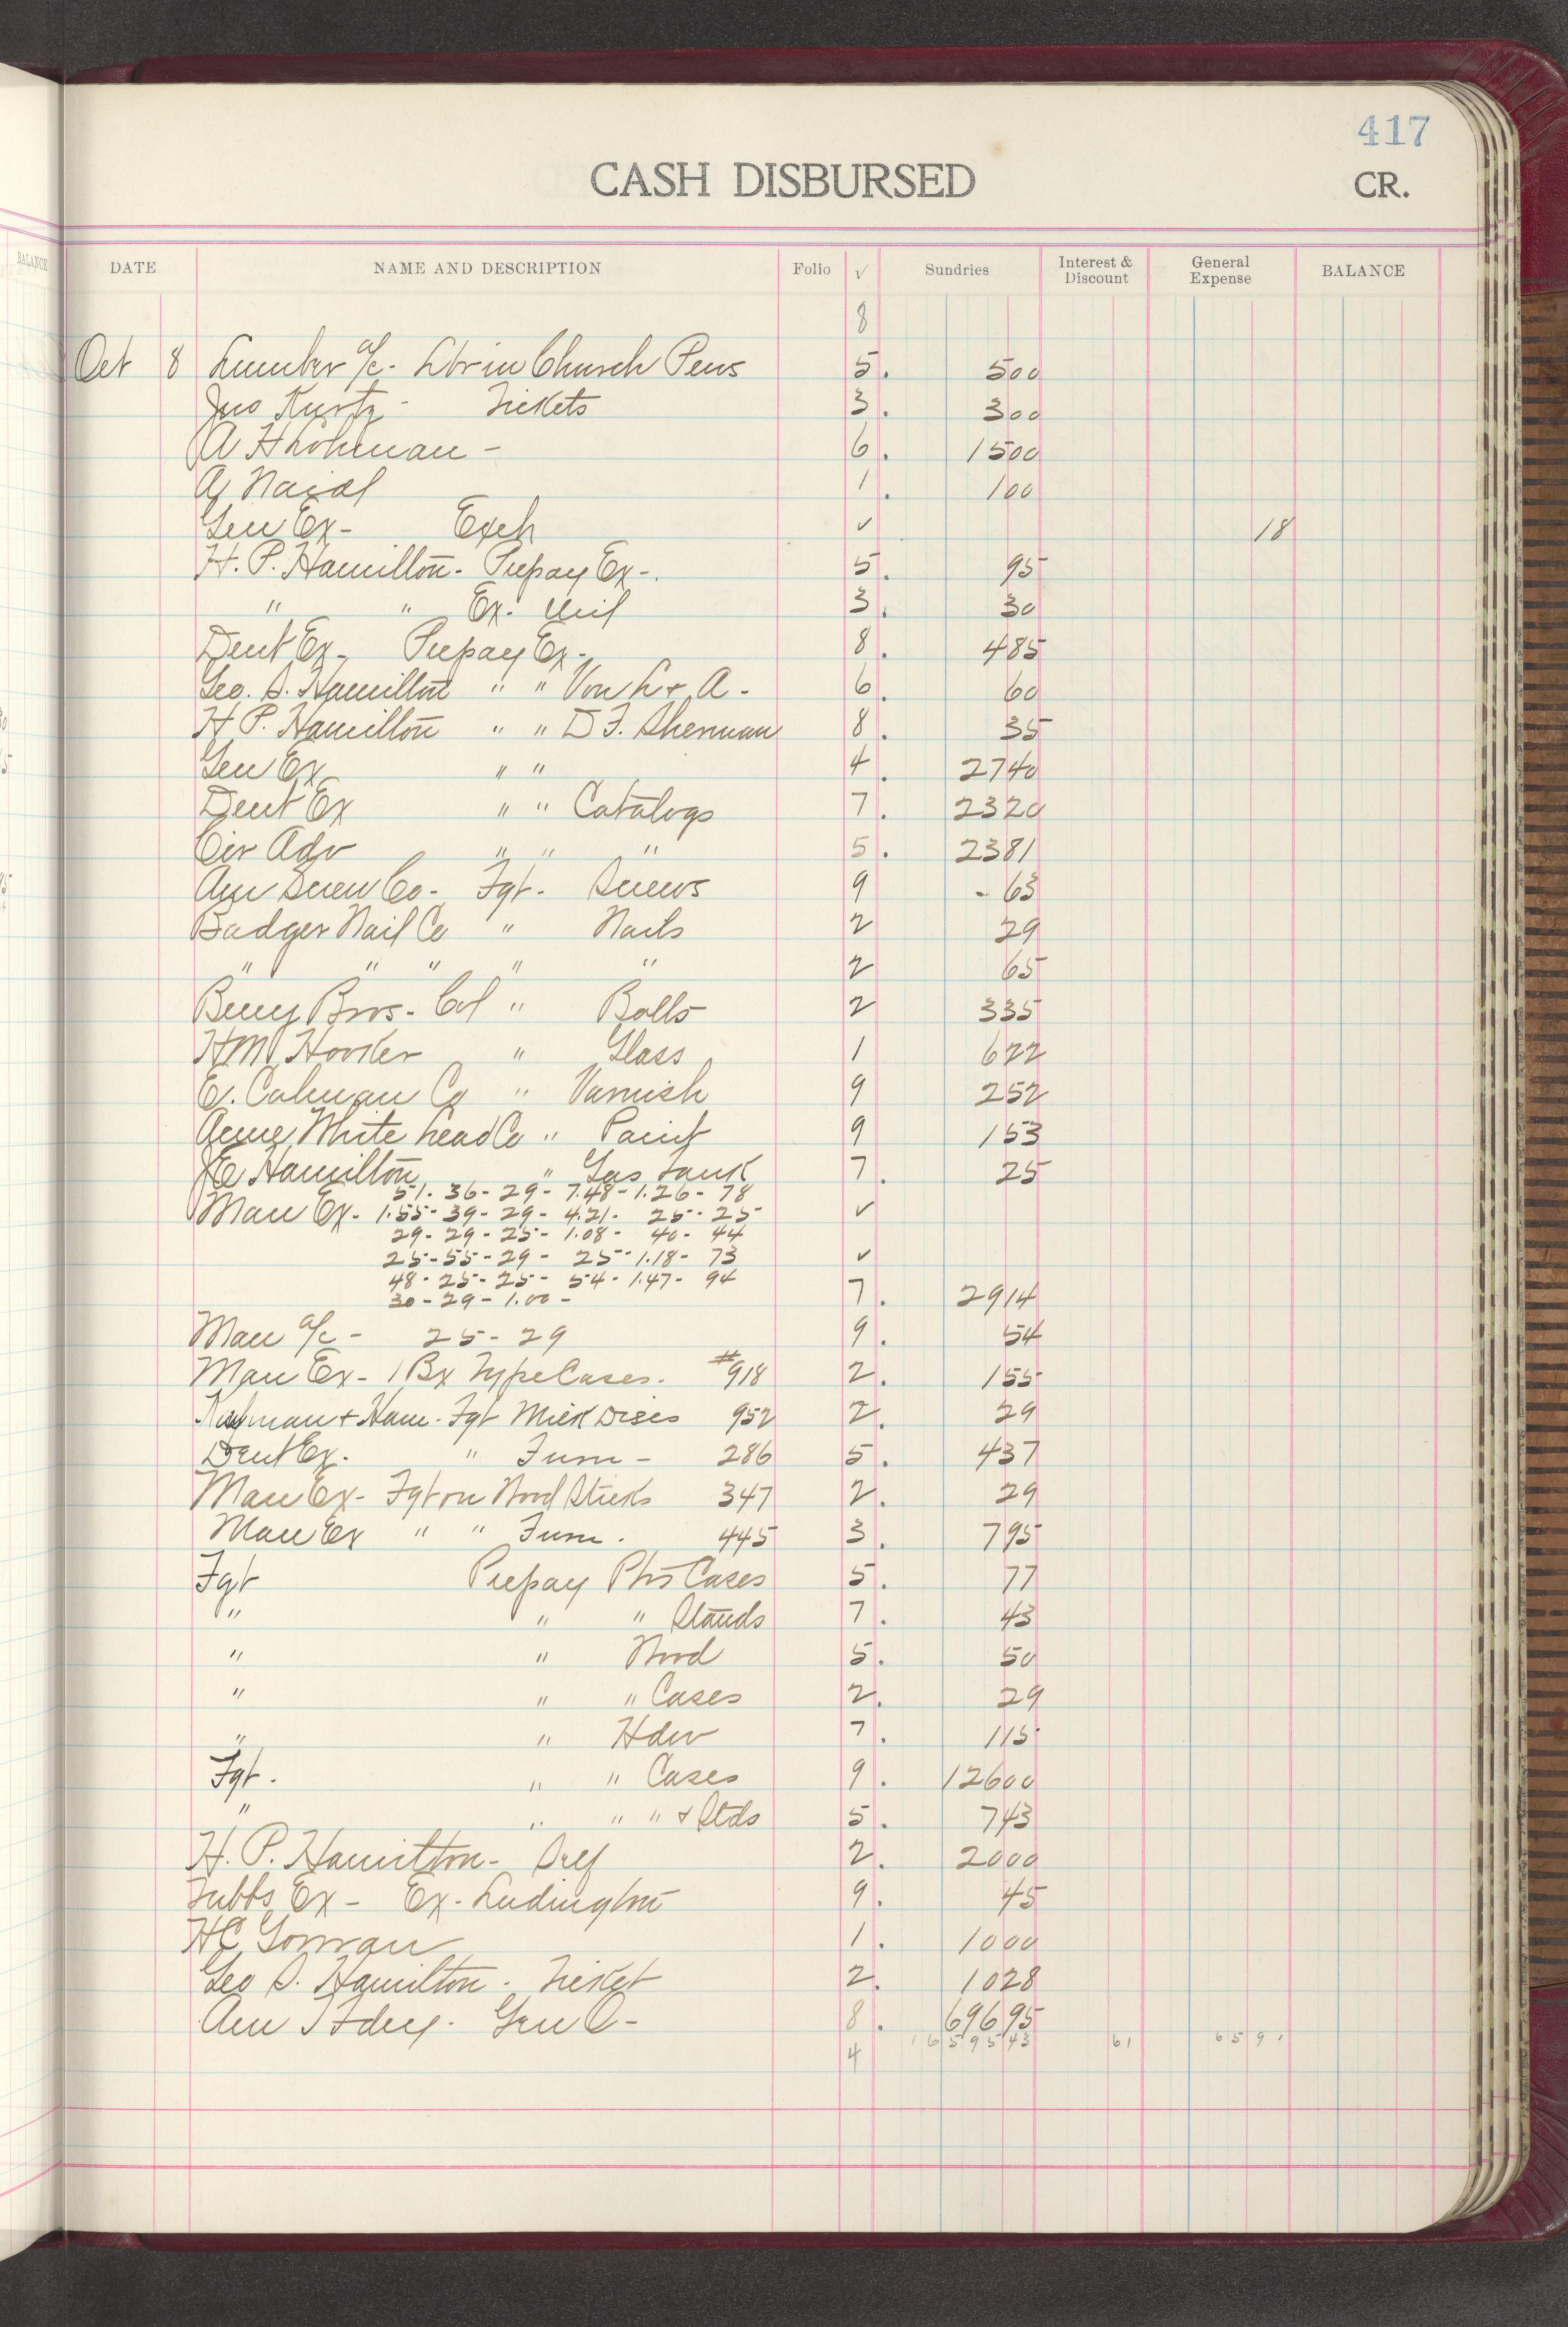 417
CASH DISBURSED
CR.
BALANCE
DATE NAME AND DESCRIPTION Folio √ Sundries Interest & Discount General Expense BALANCE
8
Oct 8 Lumber a/c - Lbr in Church Pews 5. 500
Jno Kurtz - Tickets 3. 300
A H Lohman - 6. 1500
1. 100
Gen Ex - Exch ✓ 18
H. P. Hamilton - Prepay Ex - 5. 95
" " Ex. 3. 30
Dent Ex - Prepay Ex - 8. 485
Geo. S. Hamilton " " Von L + A - 6. 60
H P. Hamilton " " D F. Sherman 8. 35
Gen Ex " " 4. 2740
Dent Ex " " Catalogs 7. 2320
Cir Adv " " " 5. 2381
Am Screw Co - Fgt - Screws 9 - 63
Badger Nail Co " Nails 2 29
" " " " " 2 65
Berry Bros - " Bolts 2 335
H M Hooker " Glass 1 622
E. Calman Co " Varnish 9 252
Acme White Lead Co " Paint 9 153
J E Hamilton " Gas tank 7. 25
51 - 36 - 29 - 7.48 - 1.26 - 78
Man Ex - 1.55 - 39 - 29 - 4.21 - 25 - 25 ✓
29 - 29 - 25 - 1.08 - 40 - 44
25 - 55 - 29 - 25 - 1.18 - 73 ✓
48 - 25 - 25 - 54 - 1.47 - 94
30 - 29 - 1.00 - 7. 2914
Man a/c - 25 - 29 9. 54
Man Ex - 1 Bx Type Cases. #918 2. 155
+ Ham - Fgt Discs 952 2. 29
Dent Ex. " Furn - 286 5. 437
Man Ex - Fgt on Wood Sticks 347 2. 29
Man Ex " " Furn. 445 3. 795
Fgt Prepay Ptrs Cases 5. 77
" " " Stands 7. 43
" " Wood 5. 50
" " " Cases 2. 29
" " Hdw 7. 115
Fgt. " " Cases 9. 12600
" " " " + Stds 5. 743
H. P. Hamilton - Self 2. 2000
Tubbs Ex - Ex - Ludington 9. 45
H C Gorman 1. 1000
Geo S. Hamilton. Ticket 2. 1028
Am T Fdry. Gen O - 8. 69695
1659543 61 6591
4